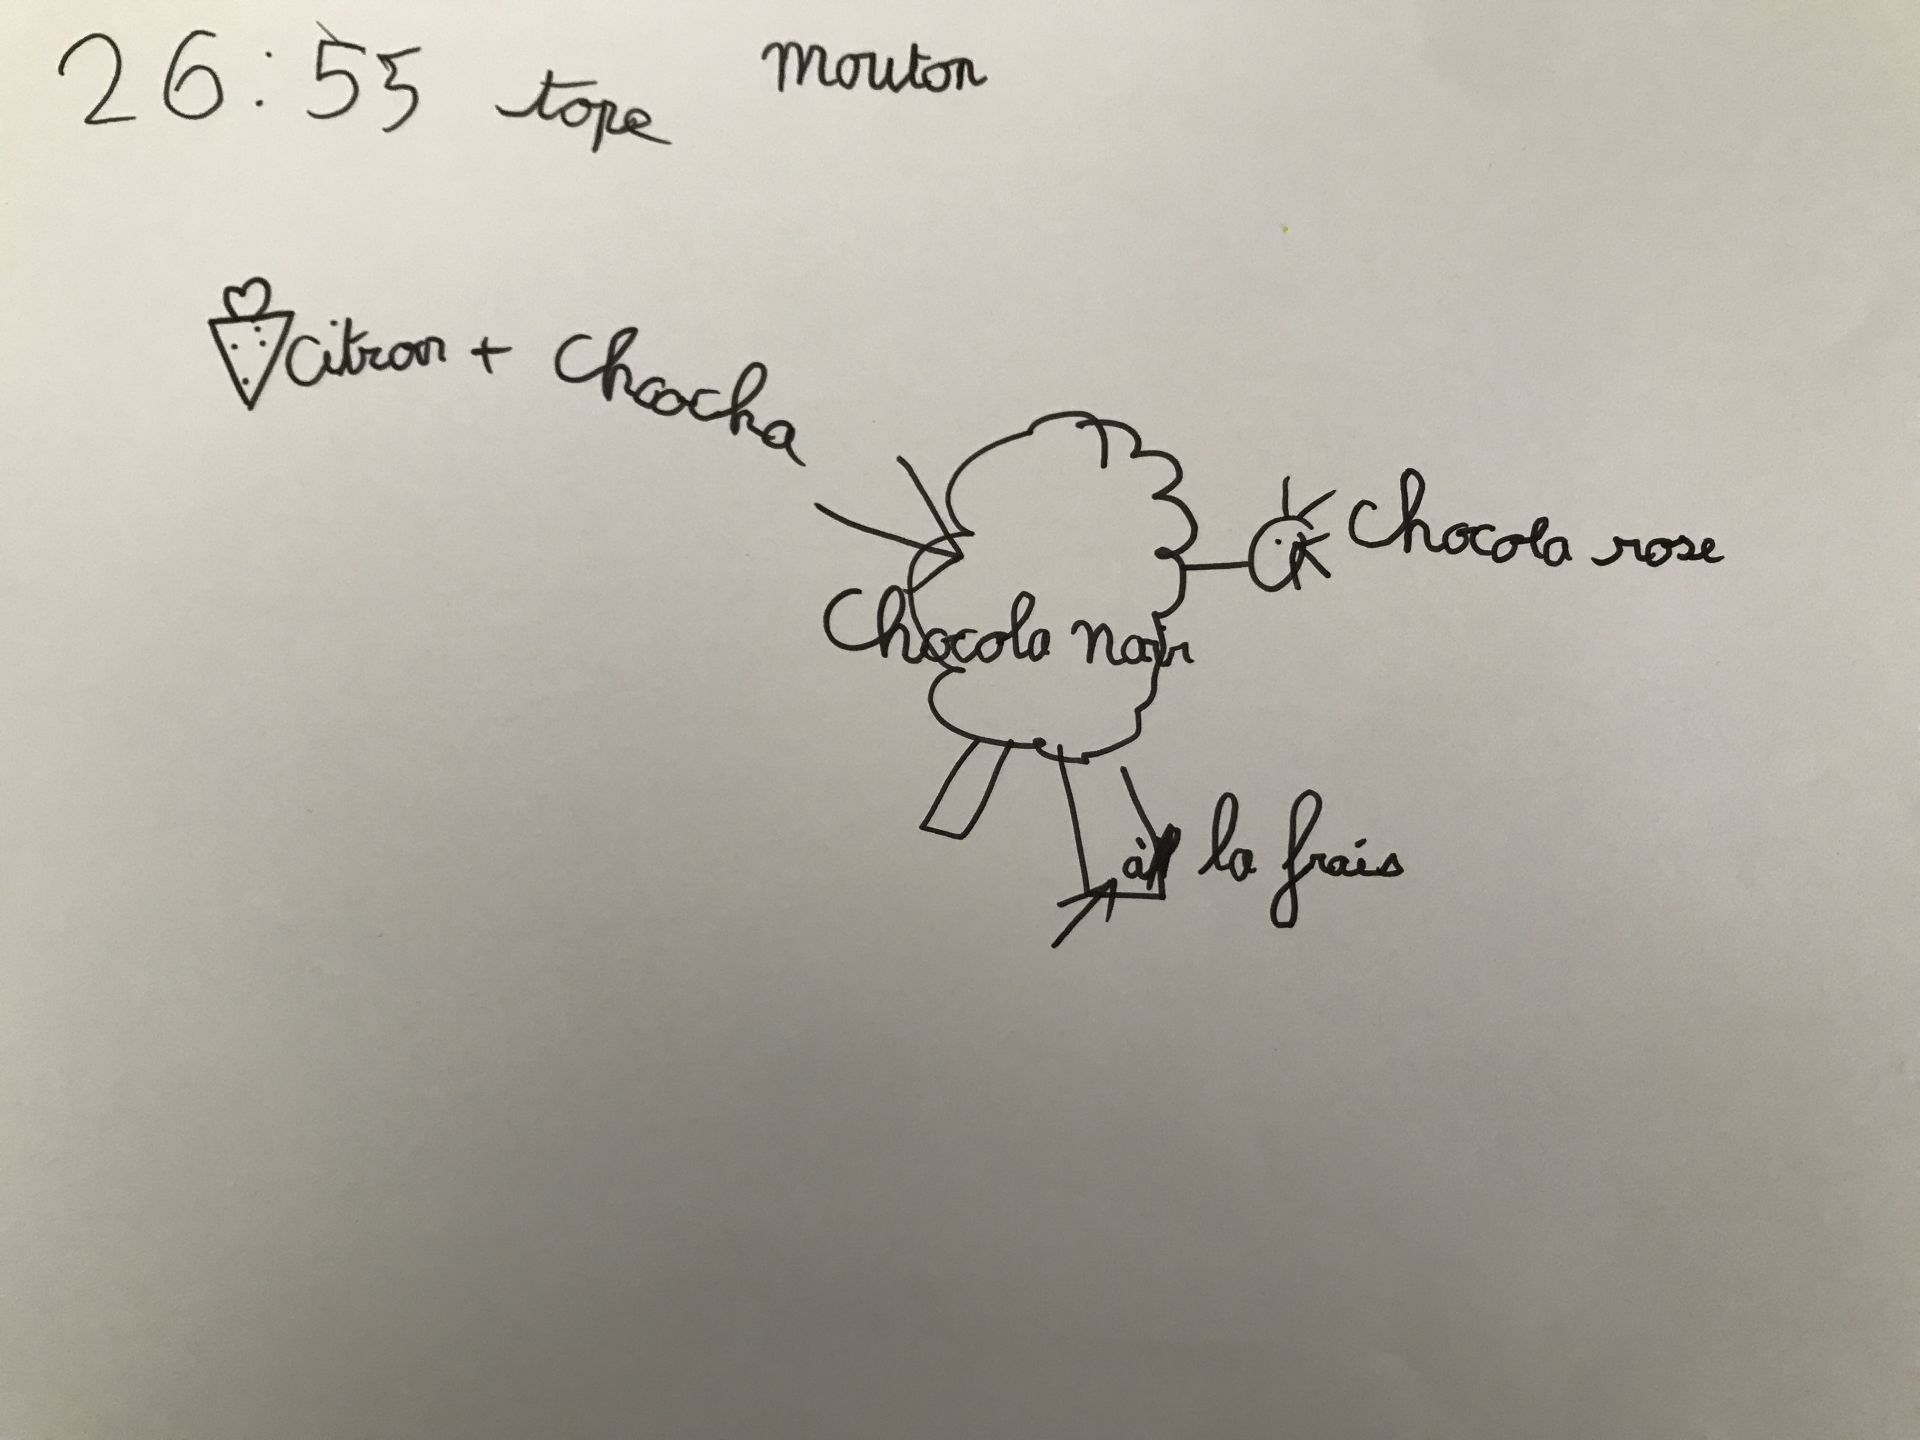 26:55 tope
mouton
citron + Choocha
Chocola rose
Chocola noir
à la frais